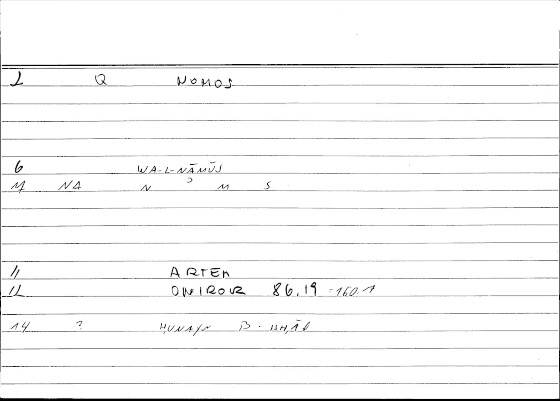 2 Q NOMOS
6 WA-L-NĀMŪS
M NA N ʾ M S
11 ARTEM
12 ONIROCR 86,19 -160,1
14 ? ḤUNAYN B.